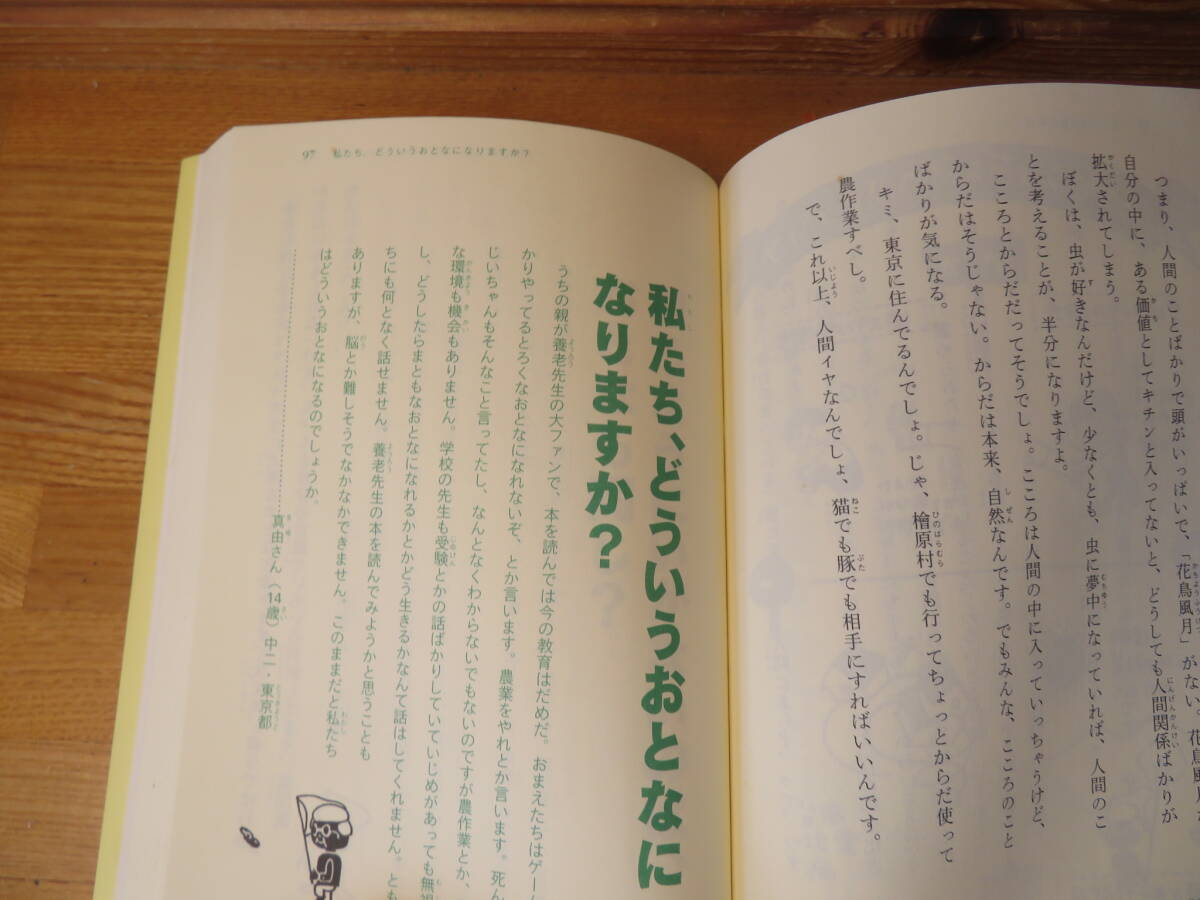 つまり、人間のことばかりで頭がいっぱいで、「花鳥風月」がない。花鳥風月
自分の中に、ある価値としてキチンと入ってないと、どうしても人間関係ばかりが
拡大されてしまう。
ぼくは、虫が好きなんだけど、少なくとも、虫に夢中になっていれば、人間のこ
とを考えることが、半分になりますよ。
こころとからだだってそうでしょ。こころは人間の中に入っていっちゃうけど、
からだはそうじゃない。からだは本来、自然なんです。でもみんな、こころのこと
ばかりが気になる。
キミ、東京に住んでるんでしょ。じゃ、檜原村でも行ってちょっとからだ使って
農作業すべし。
で、これ以上、人間イヤなんでしょ、猫でも豚でも相手にすればいいんです。
97 私たち、どういうおとなになりますか?
私たち、どういうおとなに
なりますか?
うちの親が養老先生の大ファンで、本を読んでは今の教育はだめだ。おまえたちはゲーム
かりやってるとろくなおとなになれないぞ、とか言います。農業をやれとか言います。死ん
じいちゃんもそんなこと言ってたし、なんとなくわからないでもないのですが農作業とか、
な環境も機会もありません。学校の先生も受験とかの話ばかりしていていじめがあっても無視
し、どうしたらまともなおとなになれるかとかどう生きるかなんて話はしてくれません。とも
ちにも何となく話せません。養老先生の本を読んでみようかと思うことも
ありますが、脳とか難しそうでなかなかできません。このままだと私たち
はどういうおとなになるのでしょうか。
真由さん(14歳)中二・東京都